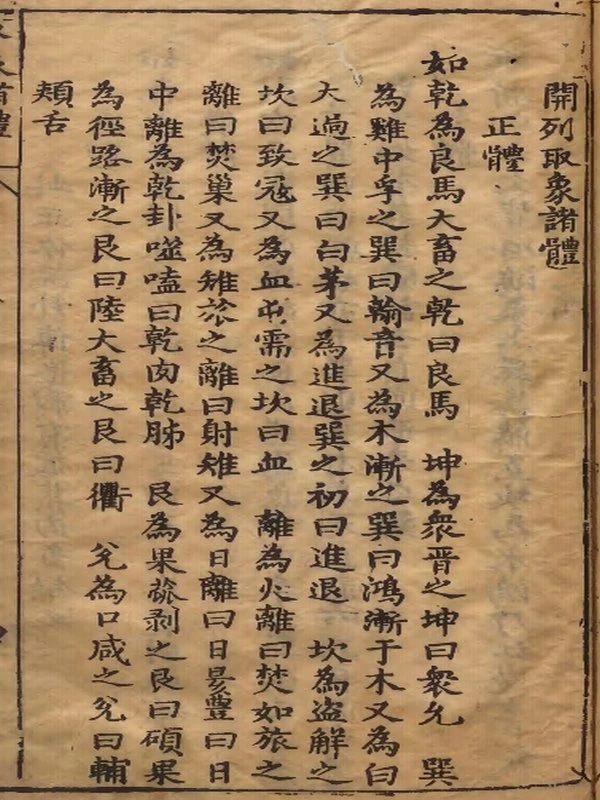 開列取象諸體
正體
如乾為良馬大畜之乾曰良馬 坤為衆晋之坤曰衆允 巽
為雞中孚之巽曰翰音又為木漸之巽曰鴻漸于木又為白
大過之巽曰白茅又為進退巽之初曰進退 坎為盗解之
坎曰致冦又為血卦需之坎曰血 離為火離曰焚如旅之
離曰焚巢又為雉旅之離曰射雉又為日離曰日昃豐曰日
中離為乾卦噬嗑曰乾肉乾胏 艮為果蓏剥之艮曰碩果
為徑路漸之艮曰陸大畜之艮曰衢 兌為口咸之兌曰輔
頰舌